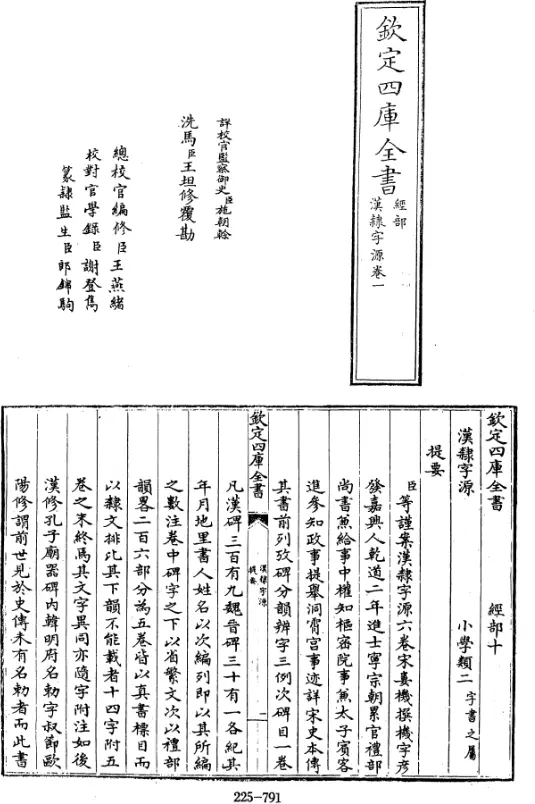 欽定四庫全書
經部
漢隸字源卷一
詳校官監察御史臣施朝幹
洗馬臣王坦修覆勘
總校官編修臣王燕緒
校對官學錄臣謝登雋
篆隸監生臣郎錦騆
欽定四庫全書 經部十
漢隸字源 小學類二 字書之屬
提要
臣等謹案漢隸字源六卷宋婁機撰機字彥
發嘉興人乾道二年進士寧宗朝累官禮部
尚書兼給事中權知樞密院事兼太子賓客
進參知政事提舉洞霄宮事迹詳宋史本傳
其書前列攷碑分韻辨字三例次碑目一卷
欽定四庫全書
漢隸字源
提要
一
凡漢碑三百有九魏晉碑三十有一各紀其
年月地里書人姓名以次編列即以其所編
之數注卷中碑字之下以省繁文次以禮部
韻畧二百六部分為五卷皆以真書標目而
以隸文排比其下韻不能載者十四字附五
卷之末終焉其文字異同亦隨字附注如後
漢修孔子廟器碑內韓明府名勅字叔節歐
陽修謂前世見於史傳未有名勅者而此書
225-791